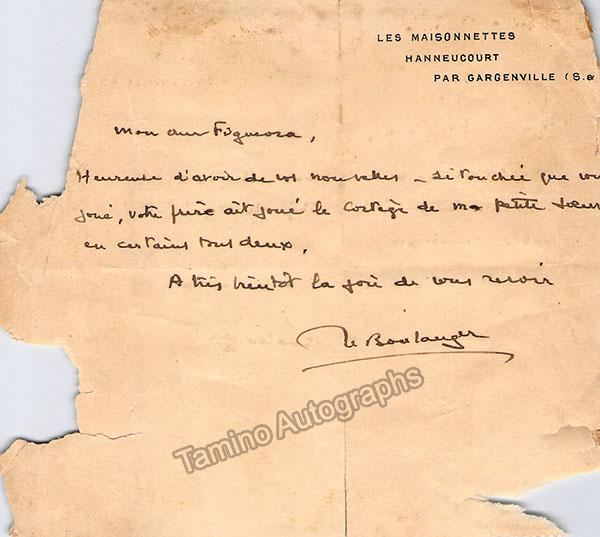 LES MAISONNETTES
HANNEUCOURT
PAR GARGENVILLE (S.&
Mon cher Figueroa,
Heureuse d'avoir de vos nouvelles – si touchée que vou
joué, votre frère ait joué le Cortège de ma petite Soeur
en certains tous deux,
A très bientôt la joie de vous revoir
N Boulanger
Tamino Autographs